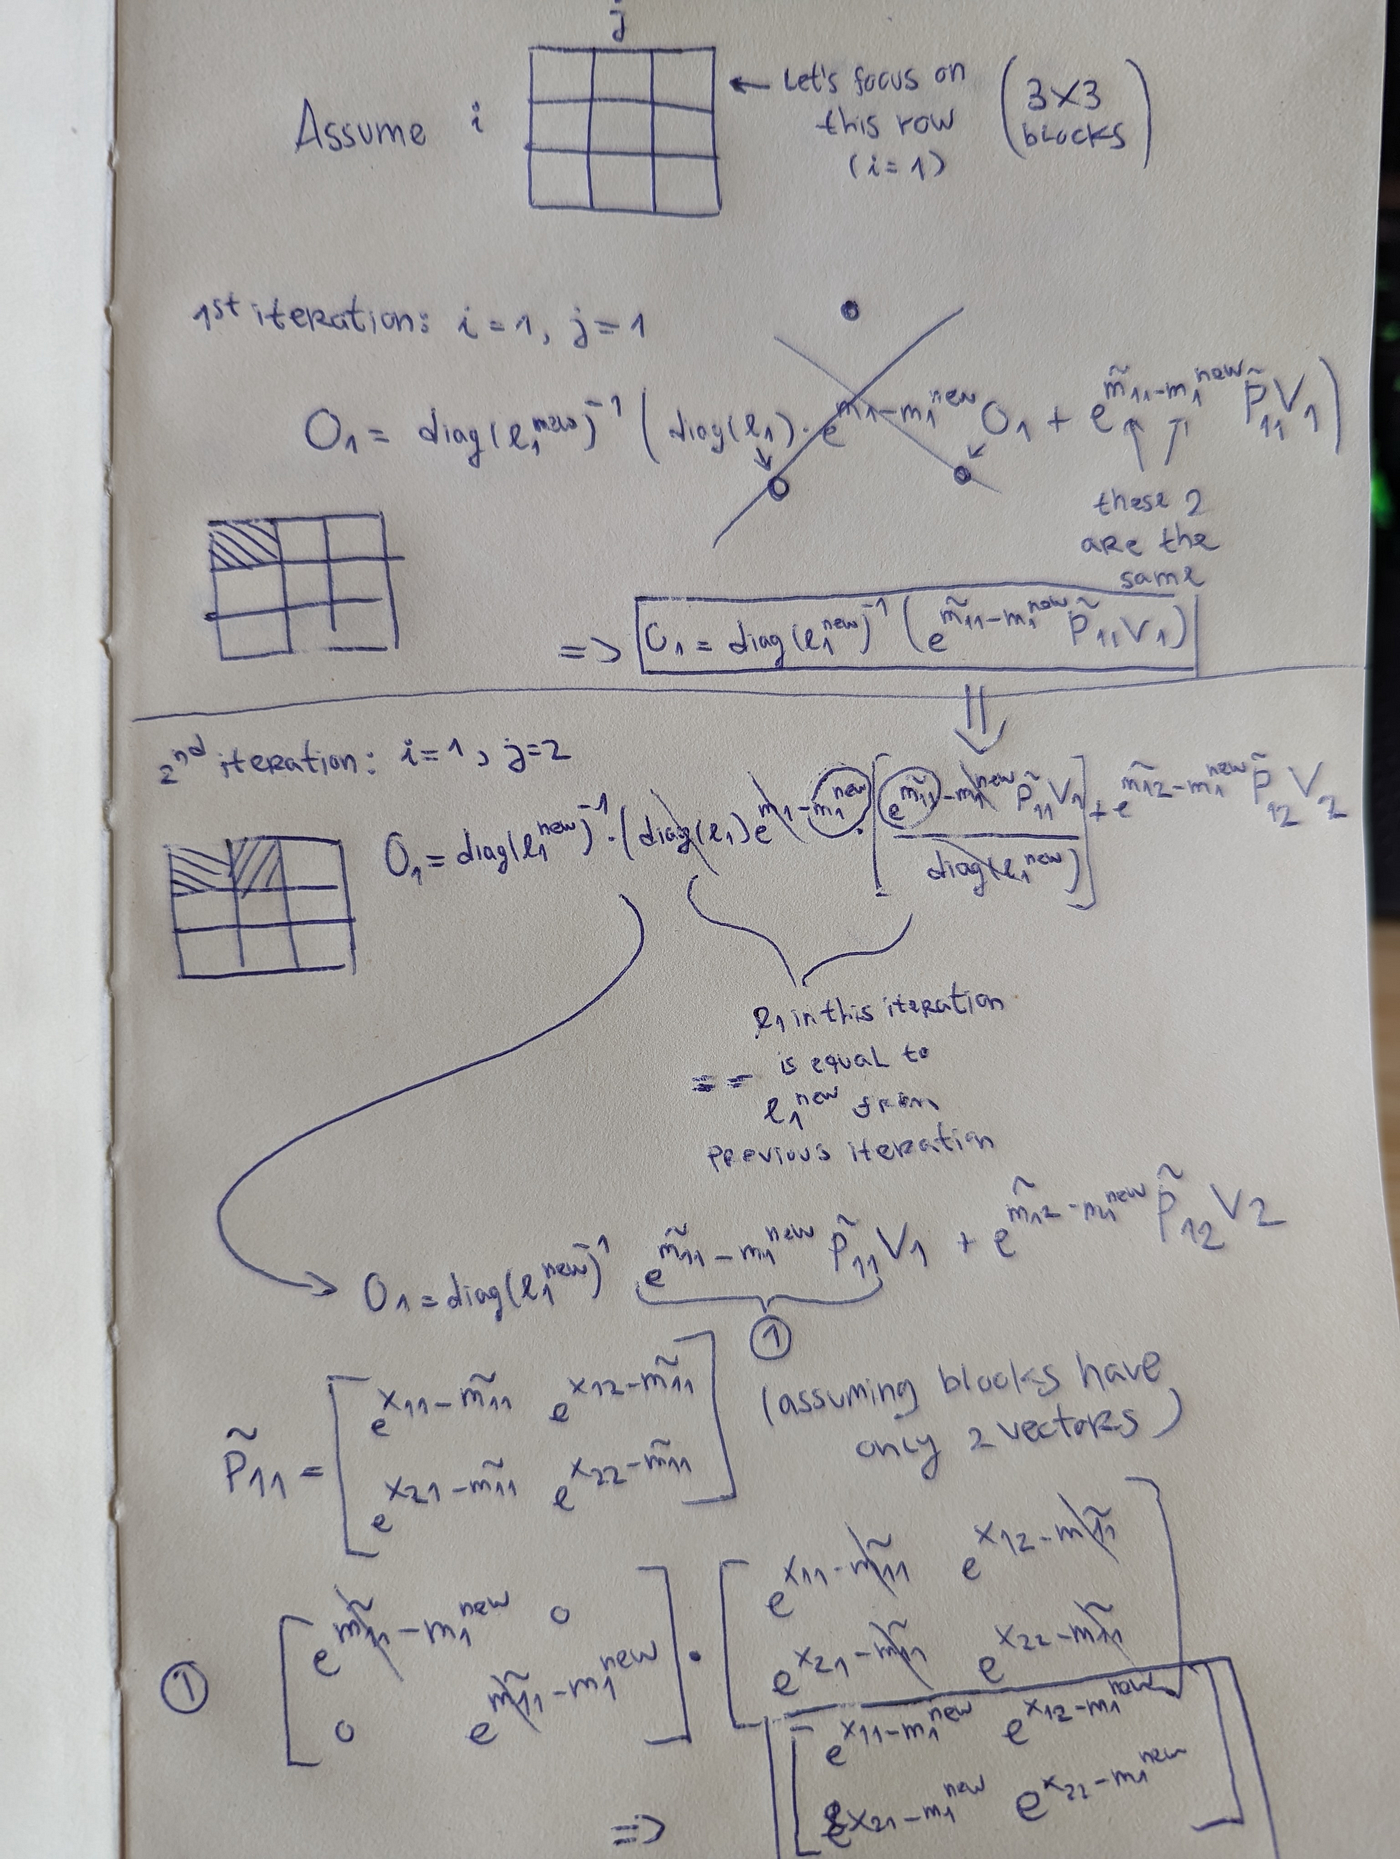 j
Assume i ← Let's focus on this row (i=1) (3X3 blocks)
1st iteration: i=1, j=1
O₁ = diag(l₁ⁿᵉʷ)⁻¹ (diag(l₁)·e^{m₁-m₁^{new}} O₁ + e^{m̃₁₁-m₁^{new}} P̃₁₁V₁)
0 0
these 2
are the
same
=> O₁ = diag(l₁^{new})⁻¹ (e^{m̃₁₁-m₁^{new}} P̃₁₁V₁)
2nd iteration: i=1, j=2
O₁ = diag(l₁^{new})⁻¹·(diag(l₁)e^{m₁-m₁^{new}}·[e^{m̃₁₁-m₁^{new}} P̃₁₁V₁ / diag(l₁^{new})] + e^{m̃₁₂-m₁^{new}} P̃₁₂V₂
l₁ in this iteration
== is equal to
l₁^{new} from
previous iteration
O₁ = diag(l₁^{new})⁻¹ e^{m̃₁₁-m₁^{new}} P̃₁₁V₁ + e^{m̃₁₂-m₁^{new}} P̃₁₂V₂
①
P̃₁₁ = [e^{x₁₁-m̃₁₁} e^{x₁₂-m̃₁₁}
e^{x₂₁-m̃₁₁} e^{x₂₂-m̃₁₁}]
(assuming blocks have
only 2 vectors)
① [e^{m̃₁₁-m₁^{new}} 0
0 e^{m̃₁₁-m₁^{new}}] · [e^{x₁₁-m̃₁₁} e^{x₁₂-m̃₁₁}
e^{x₂₁-m̃₁₁} e^{x₂₂-m̃₁₁}]
=> [e^{x₁₁-m₁^{new}} e^{x₁₂-m₁^{new}}
e^{x₂₁-m₁^{new}} e^{x₂₂-m₁^{new}}]